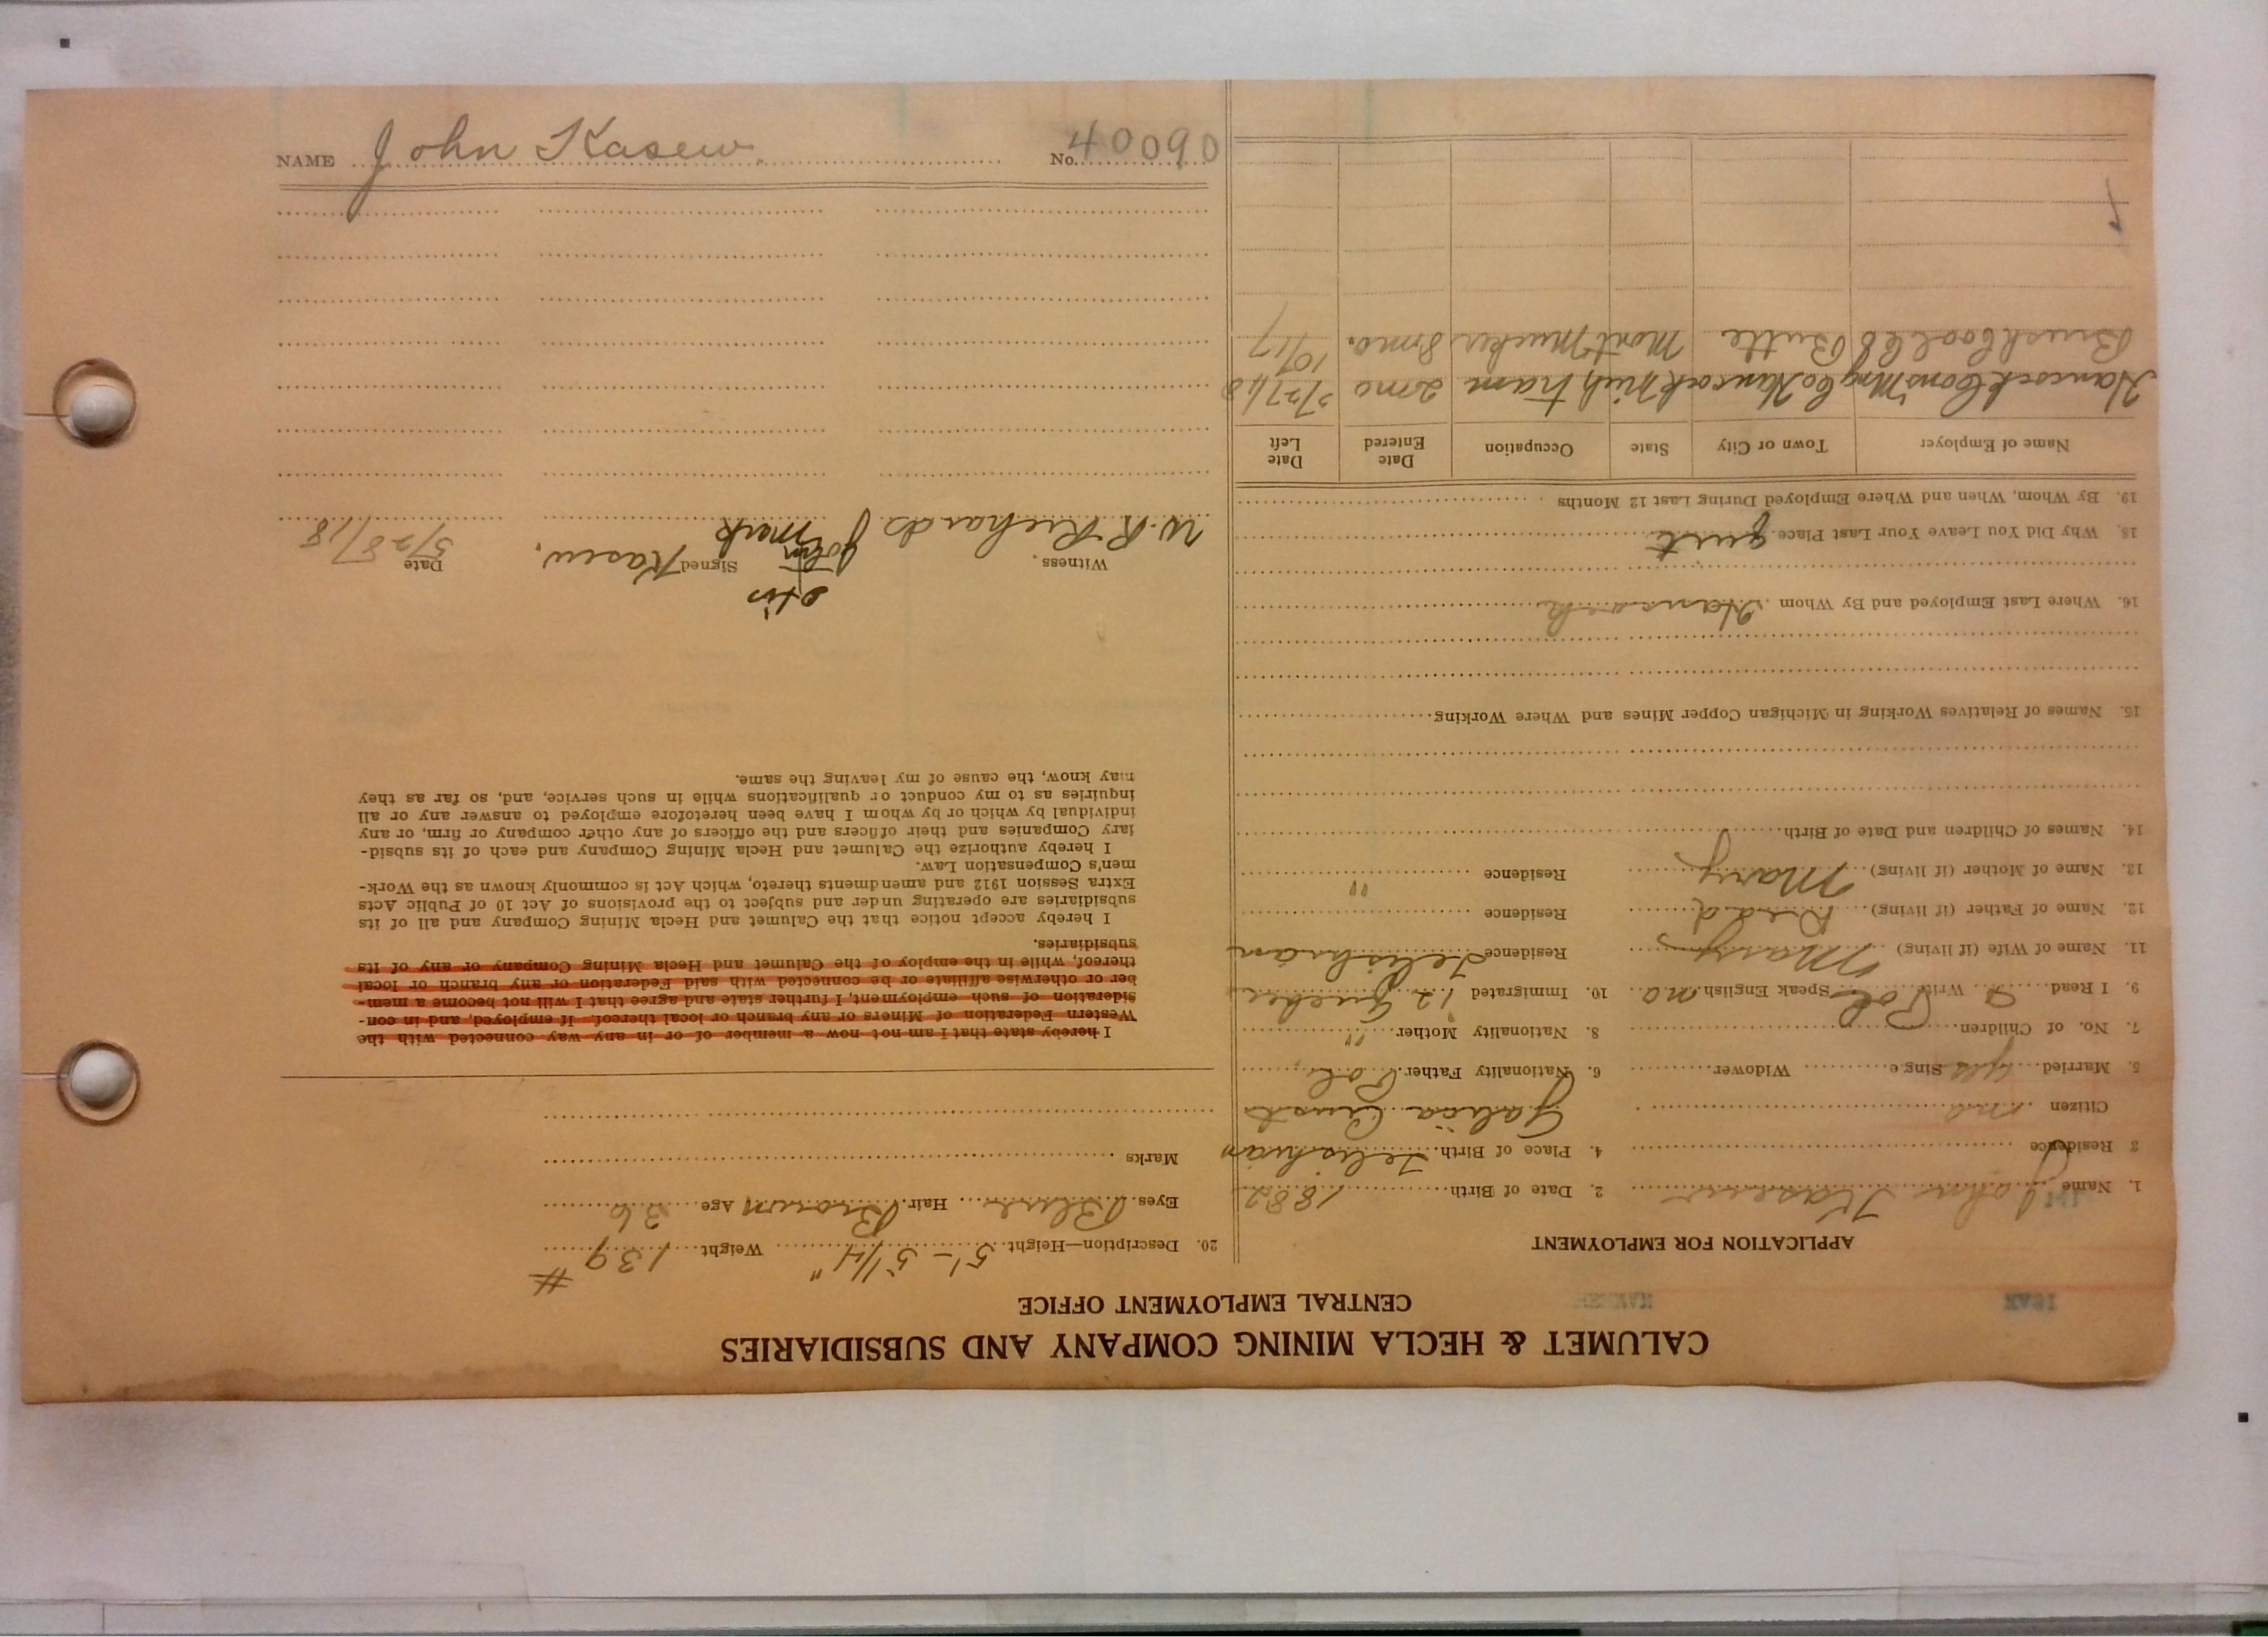 NAME John Kasew. No. 40090
CALUMET & HECLA MINING COMPANY AND SUBSIDIARIES
CENTRAL EMPLOYMENT OFFICE
APPLICATION FOR EMPLOYMENT
1. Name John Kasew 2. Date of Birth 1882
3 Residence 4. Place of Birth
Citizen no Galicia Aust
5. Married yes Single Widower 6. Nationality Father Pol
7. No. of Children 8. Nationality Mother "
9. I Read & Write Pol Speak English no 10. Immigrated 12 Quebec
11. Name of Wife (if living) Mary Residence
12. Name of Father (if living) Dead Residence
13. Name of Mother (if living) Mary Residence "
14. Names of Children and Date of Birth
15. Names of Relatives Working in Michigan Copper Mines and Where Working
16. Where Last Employed and By Whom Hancock
18. Why Did You Leave Your Last Place quit
19. By Whom, When and Where Employed During Last 12 Months
Name of Employer Town or City State Occupation Date Entered Date Left
Hancock Cons Mng Co Hancock Mich tram 2 mo 5/27/18
Butte Mont Mucker 8 mo. 10/17
20. Description—Height 5'-5 1/4" Weight 139 #
Eyes Blue Hair Brown Age 36
Marks
I hereby state that I am not now a member of or in any way connected with the
Western Federation of Miners or any branch or local thereof. If employed, and in con-
sideration of such employment, I further state and agree that I will not become a mem-
ber or otherwise affiliate or be connected with said Federation or any branch or local
thereof, while in the employ of the Calumet and Hecla Mining Company or any of its
subsidiaries.
I hereby accept notice that the Calumet and Hecla Mining Company and all of its
subsidiaries are operating under and subject to the provisions of Act 10 of Public Acts
Extra Session 1912 and amendments thereto, which Act is commonly known as the Work-
men's Compensation Law.
I hereby authorize the Calumet and Hecla Mining Company and each of its subsid-
iary Companies and their officers and the officers of any other company or firm, or any
individual by which or by whom I have been heretofore employed to answer any or all
inquiries as to my conduct or qualifications while in such service, and, so far as they
may know, the cause of my leaving the same.
his
Witness Signed John + Kasew. Date
W. R Richards mark 5/28/18